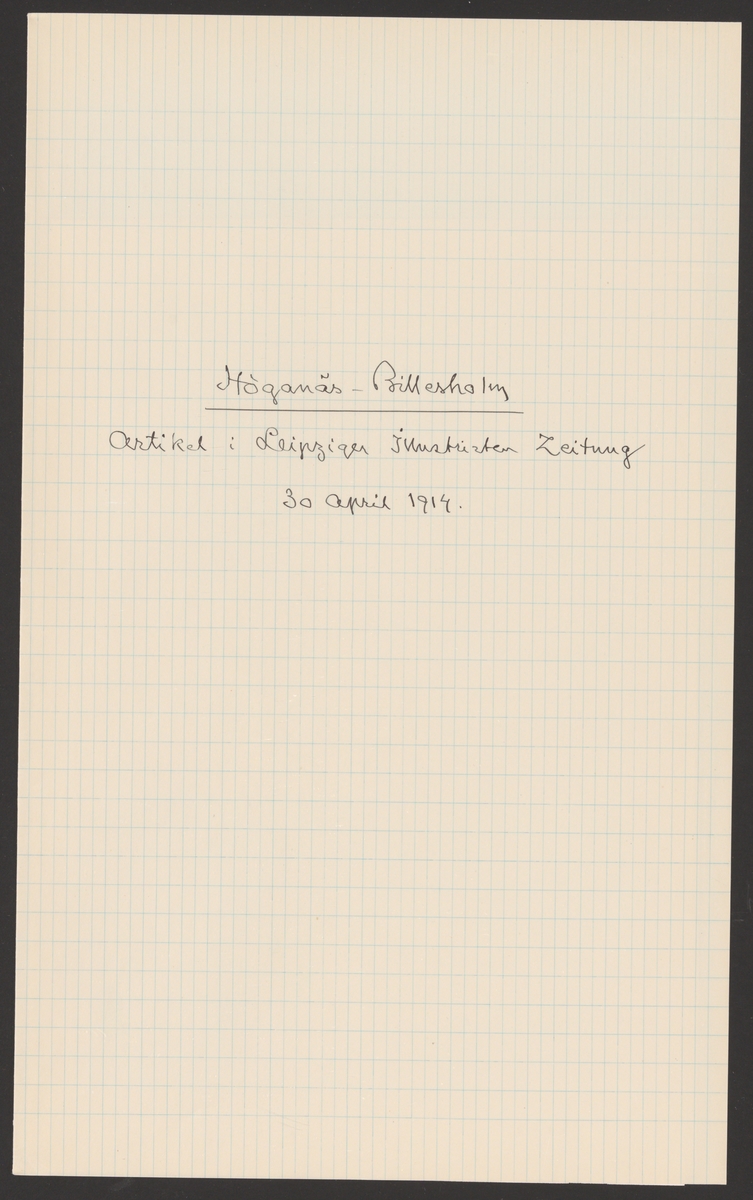 Höganäs – Billesholm
Artikel i Leipziger Illustrirten Zeitung
30 April 1914.